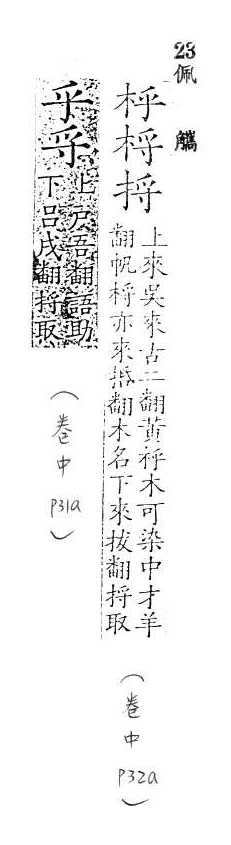 23 佩觿
㭔㭩捋
上來吳來古二翻黃㭔木可染中才羊
翻帆㭩亦來抵翻木名下來拔翻捋取
(卷中 P32a)
乎寽
上戶吾翻語助
下呂戌翻捋取
(卷中 P31a)